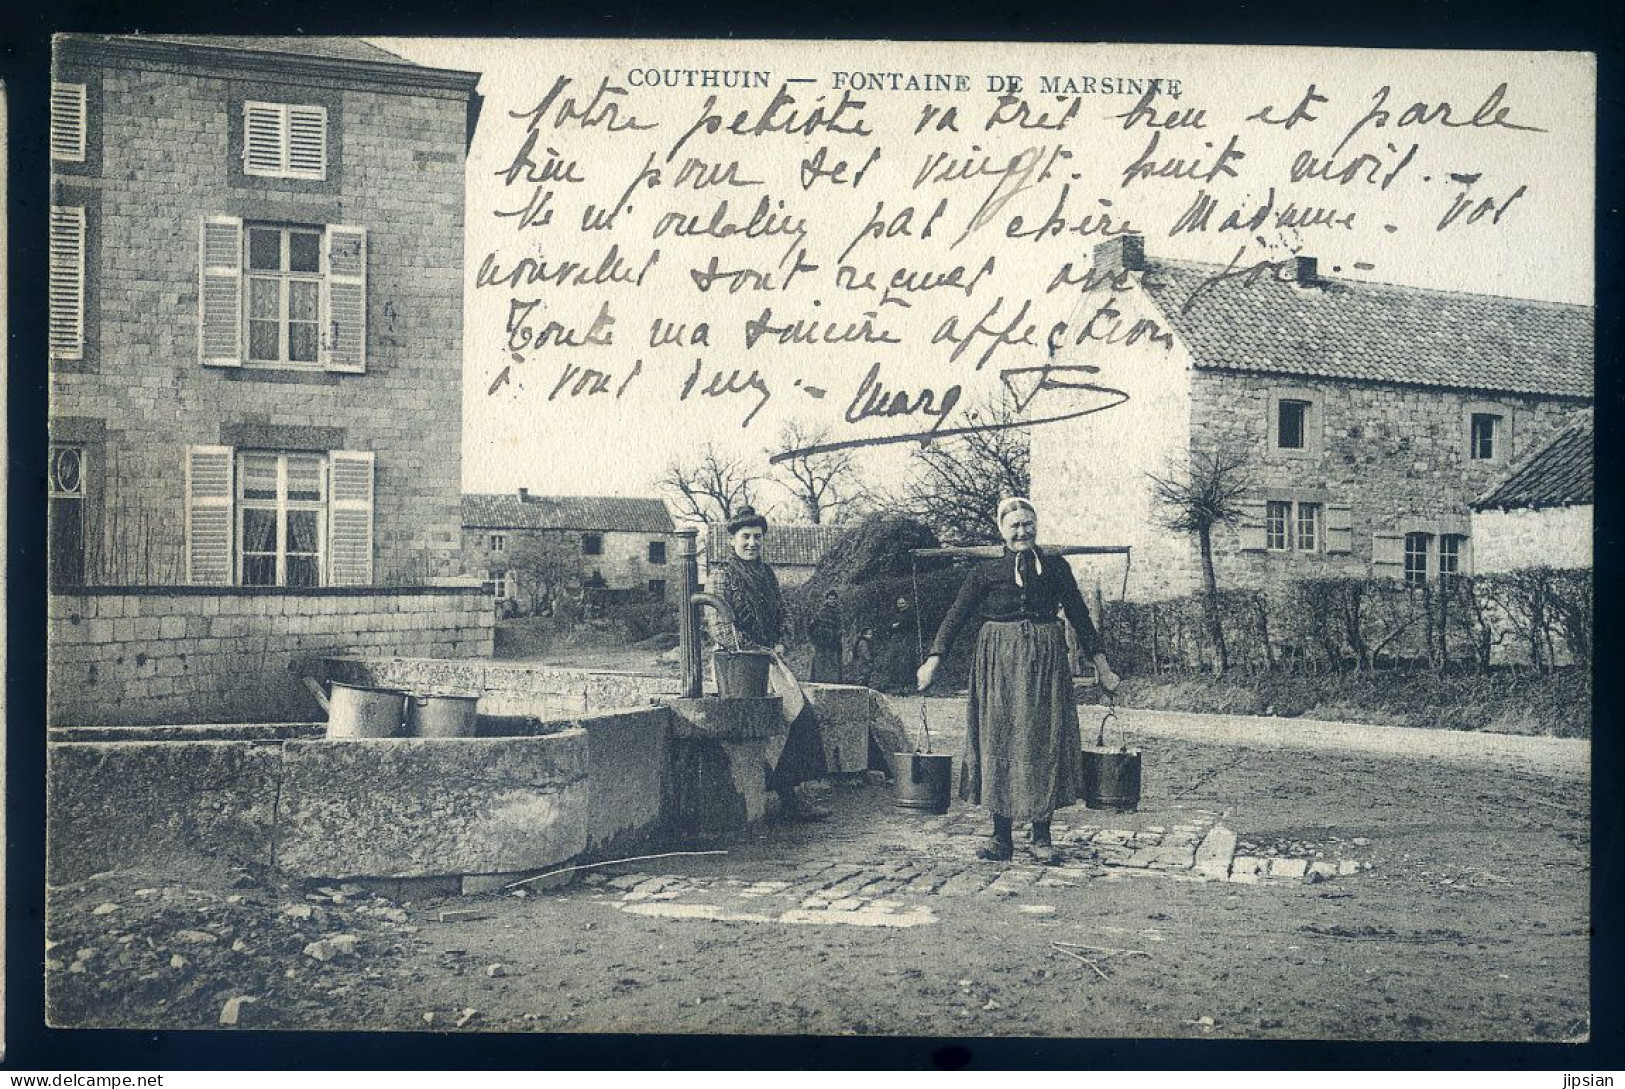 COUTHUIN — FONTAINE DE MARSINNE
Notre petiote va très bien et parle
bien pour ses vingt-huit mois. -
Ne m'oubliez pas, chère Madame. Vos
nouvelles sont reçues avec joie. -
Toute ma sincère affection
à vous deux. - Marg
jipsian
delcampe.net